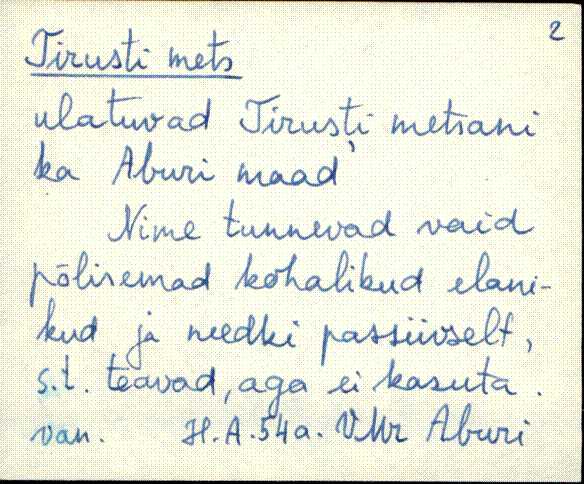 2
Tirusti mets
ulatuvad Tirusti metsani
ka Aburi maad
Nime tunnevad vaid
põlisemad kohalikud elani-
kud ja needki passiivselt,
s.t. teavad, aga ei kasuta.
van. H.A.54a. VMr Aburi